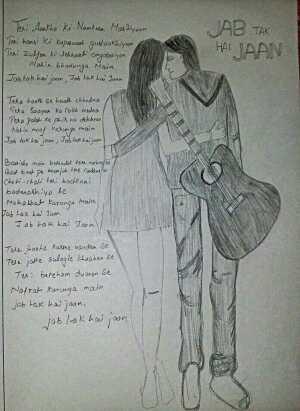 Teri Aankho ki Namkeen Mastiyaan
Teri hansi ki beparwaah gustaakhiyaan
Teri zulfon ki lehraati angdaiyaan
Nahin bhoolunga Main
Jab tak hai jaan, Jab tak hai Jaan
JAB TAK
HAI JAAN
Tera haath se haath chhodna
Tera Saayon ka rukh modna
Tera palat ke phir na dekhna
Nahin maaf karunga main
Jab tak hai jaan, Jab tak hai jaan
Baarisho mein
Baat baat pe
Choti choti teri bachkani
badmashiyo se
Mohabbat karunga main
Jab tak hai Jaan
Jab tak hai Jaan
Tere jhoote kasme vaadon se
Tere jalte sulagte khwabon se
Teri be raham duaon se
Nafrat karunga main
jab tak hai jaan,
jab tak hai jaan